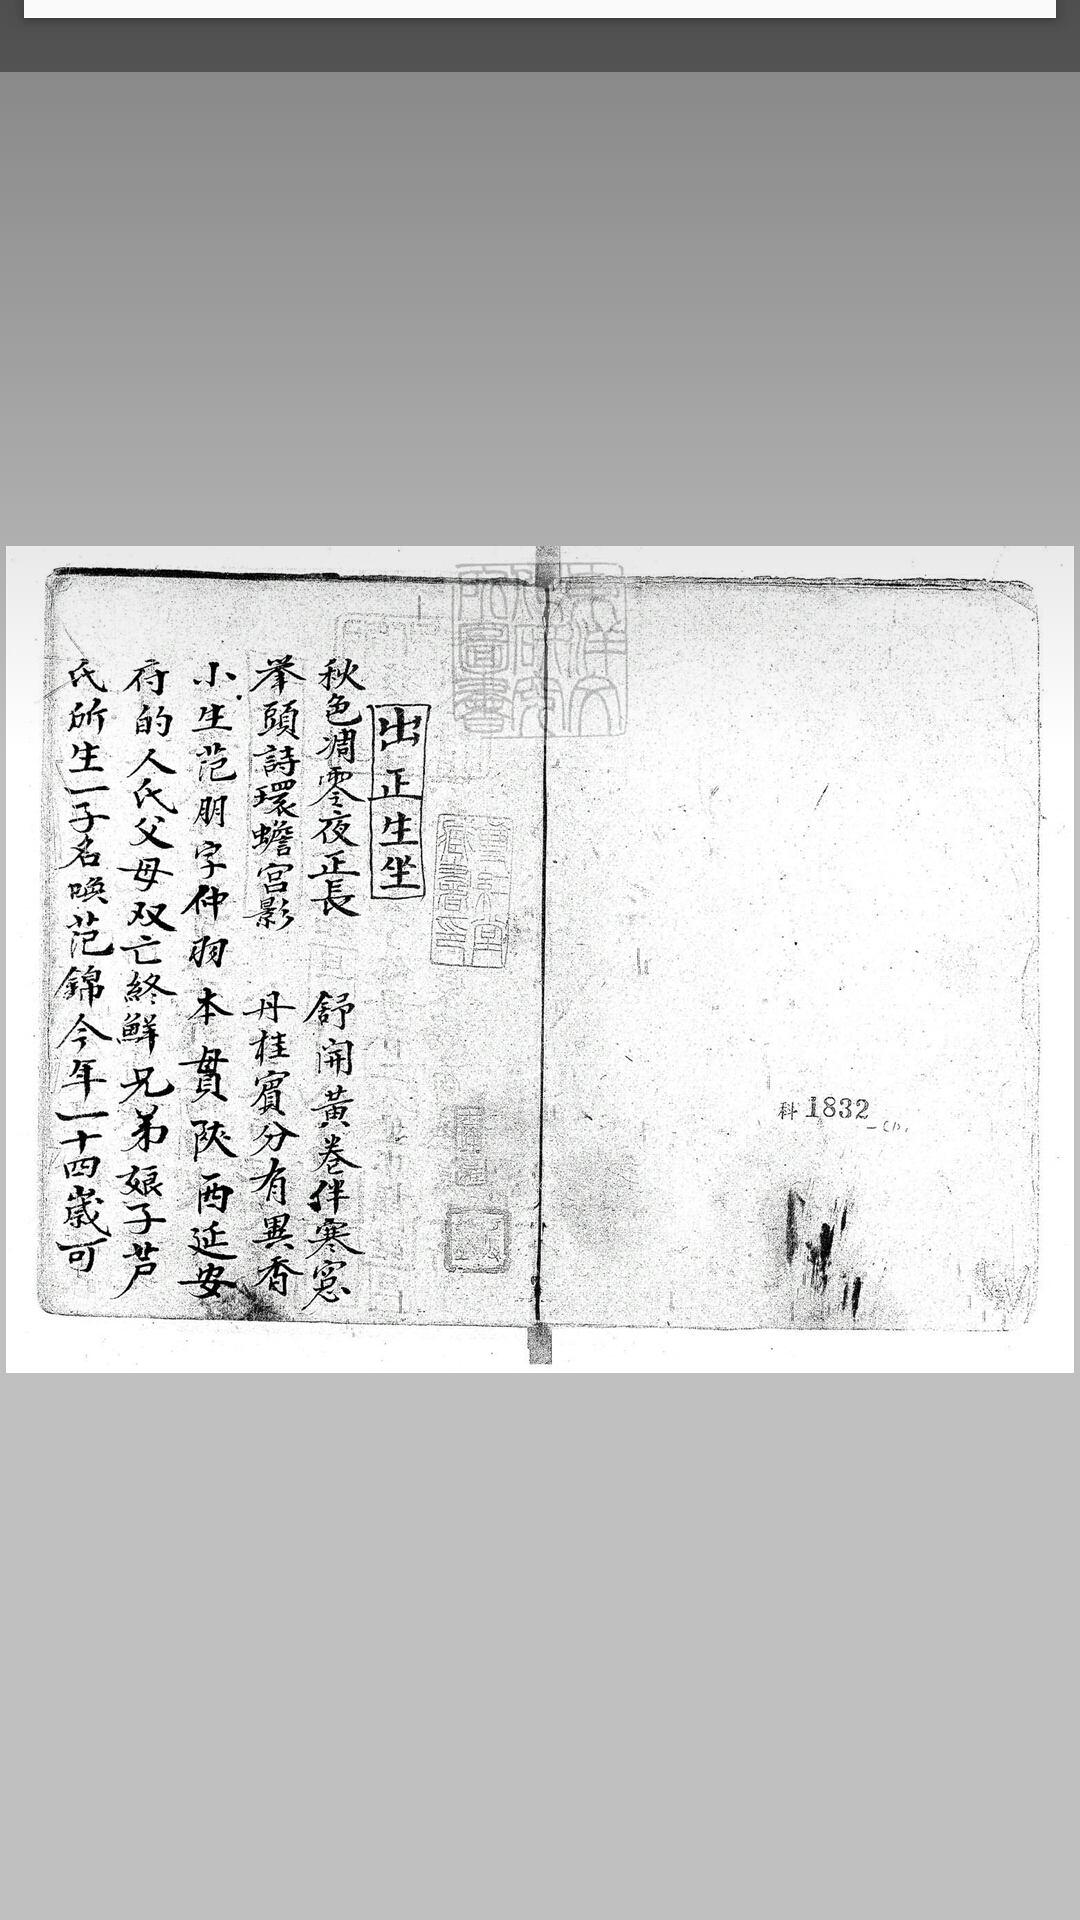 科1832
出正生坐
秋色凋零夜正長 舒開黃卷伴寒窓
举頭詩環蟾宮影 丹桂賓分有異香
小生范朋字仲羽 本貫陝西延安
府的人氏父母双亡終鮮兄弟娘子芦
氏所生一子名唤范錦今年一十四歲可